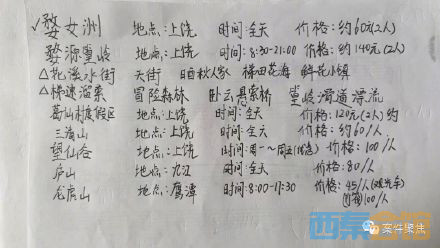 ✓婺女洲 地点:上饶 时间:全天 价格:约60元(2人)
婺源篁岭 地点:上饶 时间:8:30-21:00 价格:约140元(2人)
△花溪水街 天街 晒秋人家 梯田花海 鲜花小镇
△梯速溜索 冒险森林 卧云悬索桥 篁岭滑道漂流
葛仙村度假区 地点:上饶 时间:全天 价格:120元(2人)约
三清山 地点:上饶 时间:全天 价格:约60/人
望仙谷 地点:上饶 时间:周一~周五 价格:100/人
庐山 地点:九江 时间:全天 价格:80/人
龙虎山 地点:鹰潭 时间:8:00-17:30 价格:45/人(观光车)
100/人
西部
案件聚焦